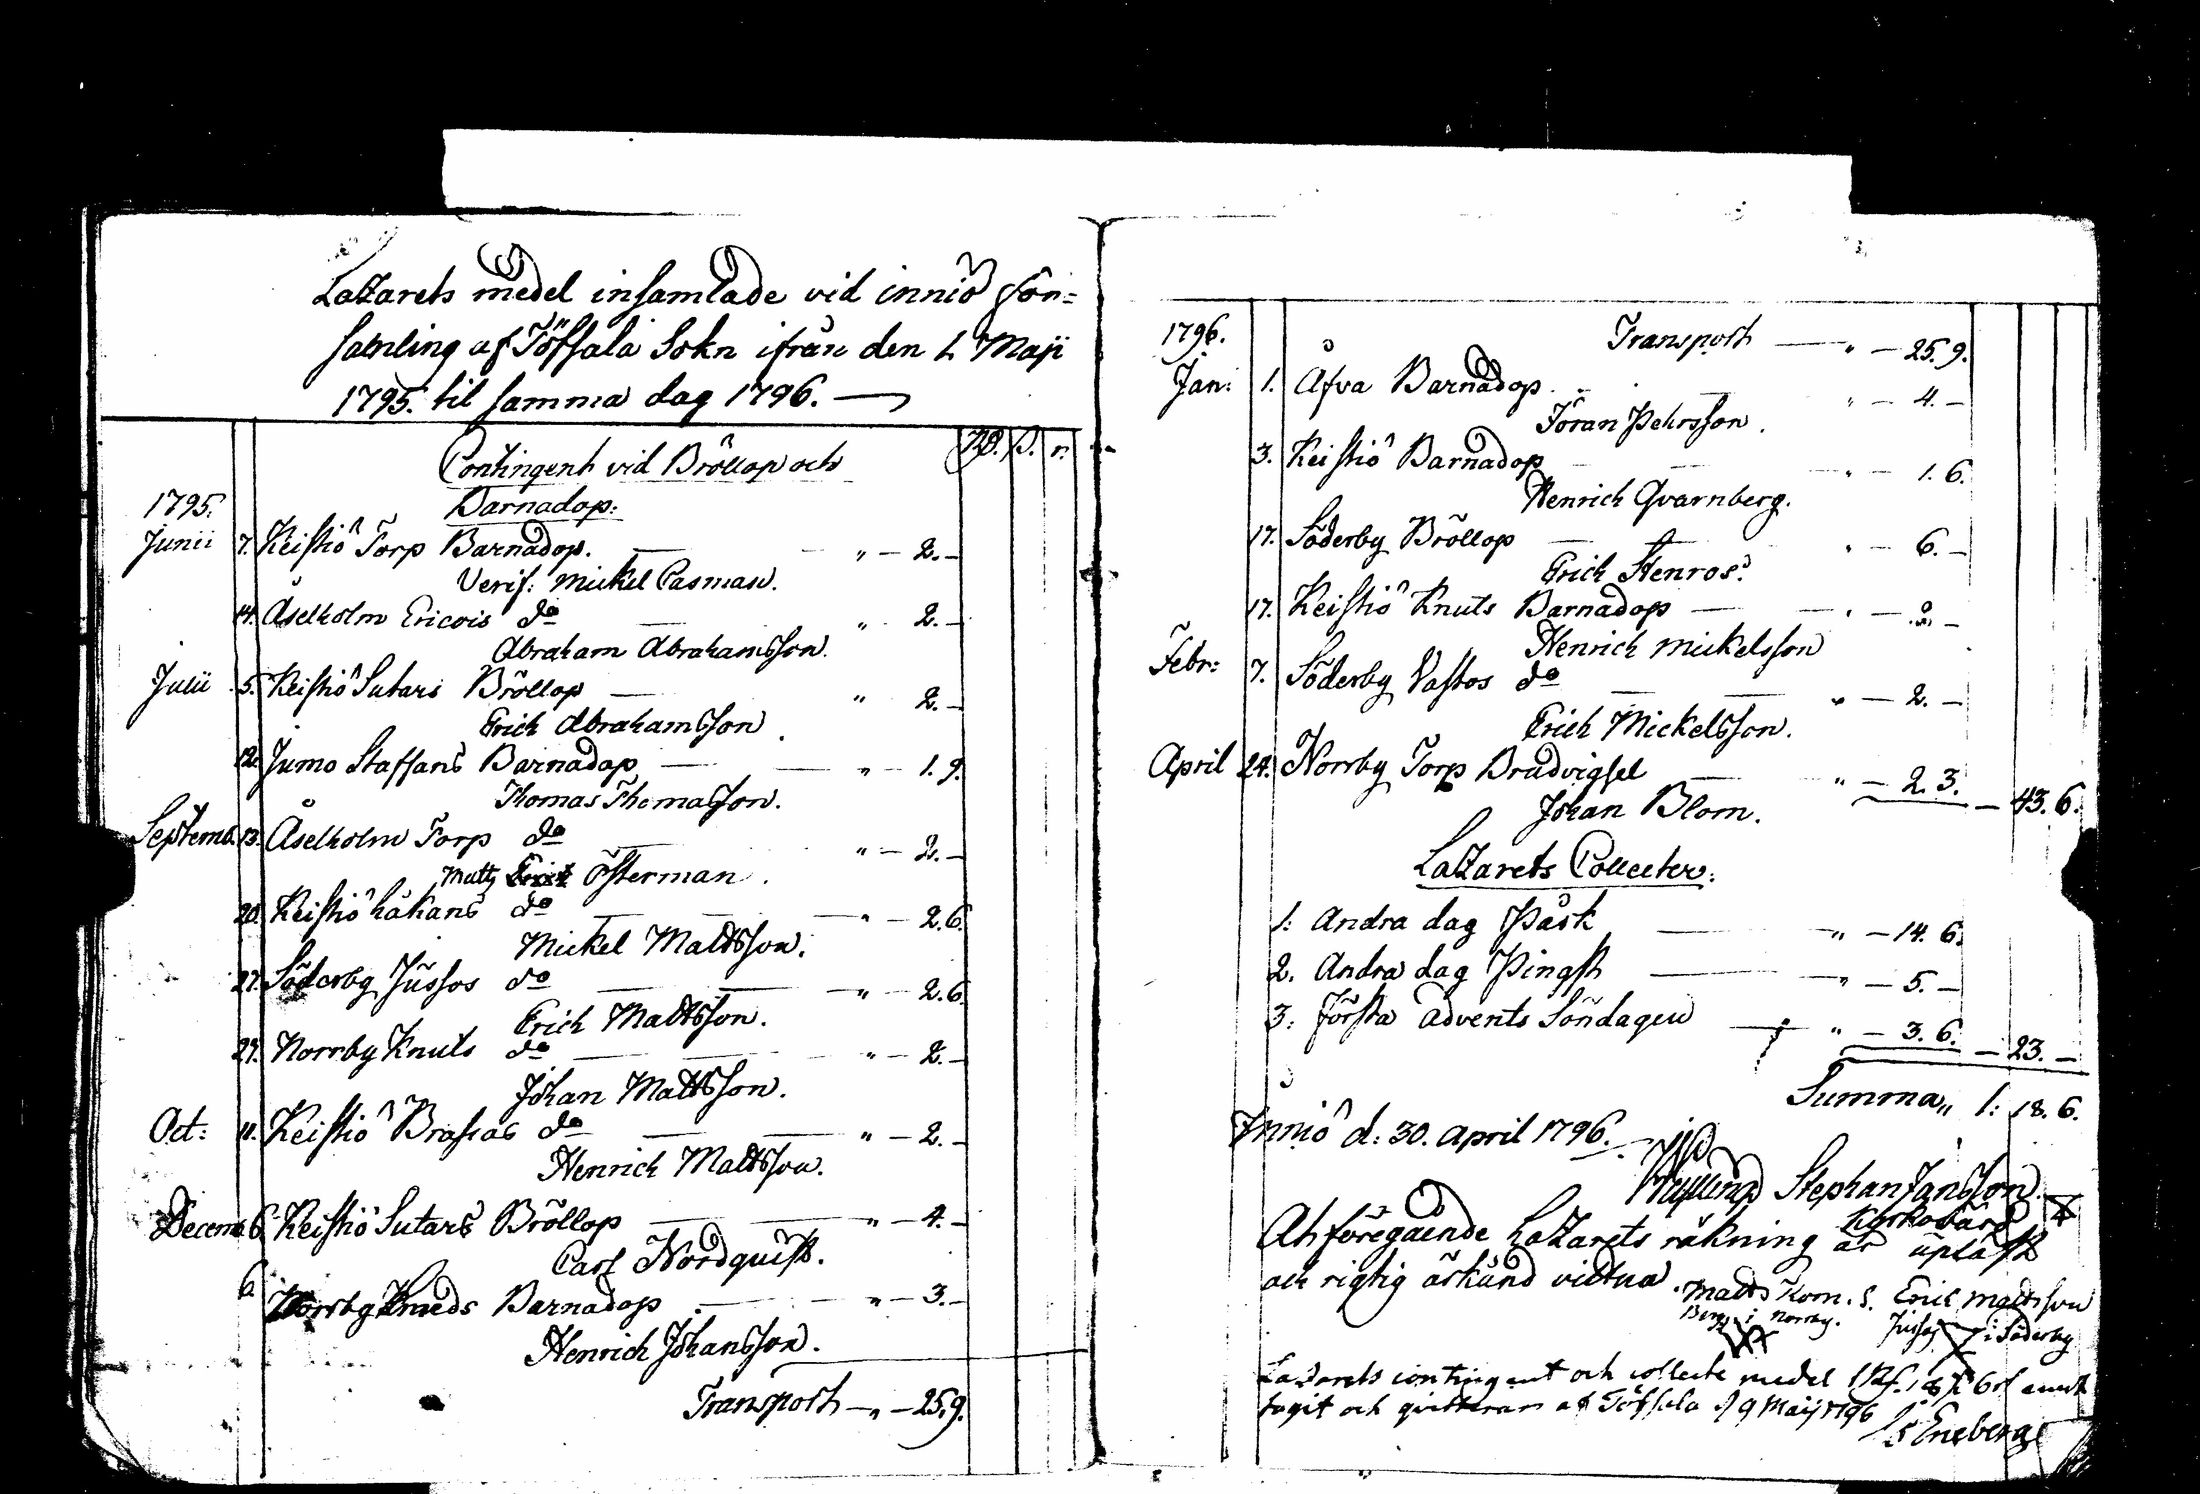 Lazarets medel insamlade vid inniö för=
samling af Töfsala Sokn ifrån den 1 Maji
1795. til samma dag 1796. —
Contingent vid Bröllop och
Barnadop:
Rd. ß. r.
1795.
Junii 7. Keistiö Torp Barnadop. — " — 2. —
Verif: Mickel Casman.
14. Åselholm Ericois do — " 2. —
Abraham Abrahamsson.
Julii 5. Keistiö Sutars Bröllop — " 2. —
Erich Abrahamsson.
12. Jumo Staffans Barnadop — " — 1. 9.
Thomas Thomasson.
Septemb. 13. Åselholm Torp do — " — 2. —
Matts Österman.
20. Keistiö håkans do — " — 2. 6.
Mickel Mattsson.
27. Söderby Jussos do — " — 2. 6.
Erich Mattsson.
27. Norrby Knuts do — " — 2. —
Johan Mattsson.
Oct: 11. Keistiö Brasas do — " — 2. —
Henrich Mattsson.
Decemb. 6. Keistiö Sutars Bröllop — " — 4. —
Carl Nordquist.
6. Norrby Smeds Barnadop — " — 3. —
Henrich Johansson.
Transport — " — 25. 9.
1796. Transport — " — 25. 9.
Jan: 1. Åfva Barnadop — " — 4. —
Jöran Pehrsson.
3. Keistiö Barnadop — " — 1. 6.
Henrich Qvarnberg.
17. Söderby Bröllop — " — 6. —
Erich Stenros.
17. Keistiö Knuts Barnadop — " — 2. —
Henrich Mickelsson
Febr: 7. Söderby Vastos do — " — 2. —
Erich Mickelsson.
April 24. Norrby Torp Brudvigsel — " — 2. 3. — 43. 6.
Johan Blom.
Lazarets Collecter:
1: Andra dag Påsk — " — 14. 6.
2. Andra dag Pingst — " — 5. —
3: Första Advents Söndagen — " — 3. 6. — 23. —
Summa " 1: 18. 6.
Inniö d: 30. April 1796.
Stephan Jansson
Kyrkovärd
At föregående Lazarets räkning är upläst
och rigtig ärkänd vittna. Matts Hom. S. Eric Mattsson
i Norrby. Jussas i Söderby
Lazarets contingent och collecte medel 1 Rd. 18 ß 6 r
tagit och qvitteras af Töfsala d 9 Maij 1796
Eneberg